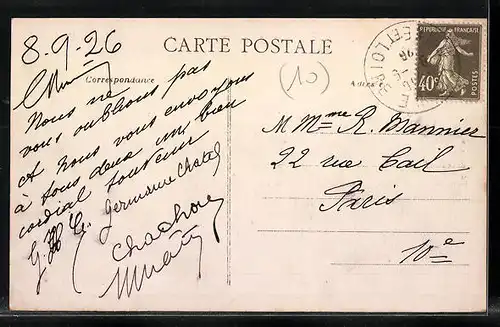 8.9.26
CARTE POSTALE
Correspondance
Nous ne
vous oublions pas
et nous vous envoyons
à tous deux un bien
cordial souvenir
Germaine Chatel
(10)
RÉPUBLIQUE FRANÇAISE
40c
POSTES
ET-LOIRE
M Mme R. Mannier
22 rue Cail
Paris
10e